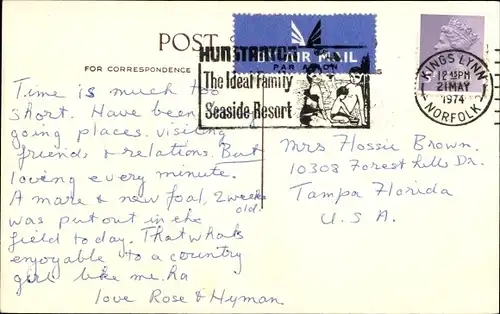 POST
FOR CORRESPONDENCE
BY AIR MAIL
PAR AVION
HUNSTANTON
The Ideal Family
Seaside Resort
KINGS LYNN
12 45PM
21 MAY
1974
NORFOLK
Time is much too
short. Have been
going places. visiting
friends & relations. But
loving every minute.
A mare & new foal, 2 weeks
old.
was put out in the
field today. That whats
enjoyable to a country
girl like me. Ha
love Rose & Hyman
Mrs Flossie Brown.
10308 Forest Hills Dr.
Tampa Florida
U.S.A.